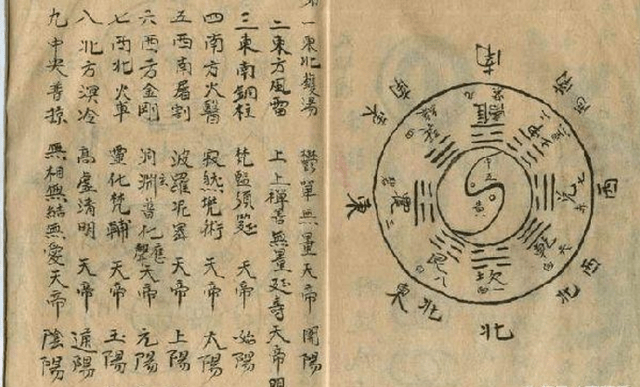 一東北鑊湯 鬱單無量天帝 開陽
二東方風雷 上上禪善無量延壽天帝 明
三東南銅柱 梵監須延 天帝 始陽
四南方火醫 寂然兜術 天帝 太陽
五西南屠割 波羅尼蜜 天帝 上陽
六西方金剛 洞淵玄普化應聲天帝 元陽
七西北火車 靈化梵輔 天帝 玉陽
八北方溟冷 高虛清明 天帝 通陽
九中央普掠 無相無結無愛天帝 陰陽
南
西南
西
西北
北
東北
東
東南
離 九
兌 七
乾 六
坎 一
艮 八